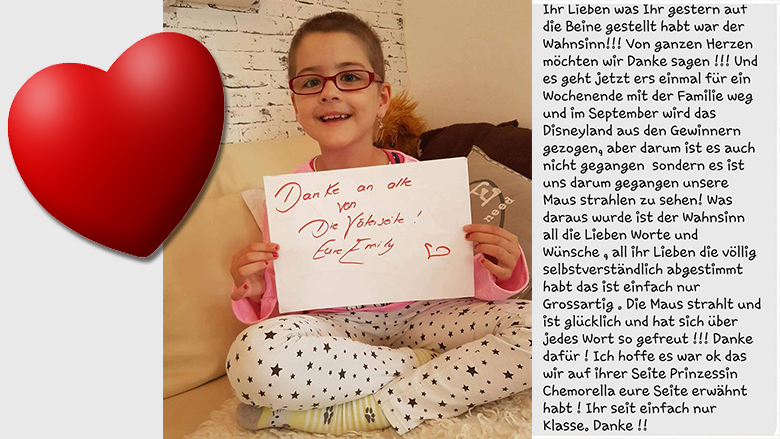 Danke an alle
von
Die Väterseite!
Eure Emily
need
Ihr Lieben was Ihr gestern auf
die Beine gestellt habt war der
Wahnsinn!!! Von ganzen Herzen
möchten wir Danke sagen !!! Und
es geht jetzt ers einmal für ein
Wochenende mit der Familie weg
und im September wird das
Disneyland aus den Gewinnern
gezogen, aber darum ist es auch
nicht gegangen sondern es ist
uns darum gegangen unsere
Maus strahlen zu sehen! Was
daraus wurde ist der Wahnsinn
all die Lieben Worte und
Wünsche , all ihr Lieben die völlig
selbstverständlich abgestimmt
habt das ist einfach nur
Grossartig . Die Maus strahlt und
ist glücklich und hat sich über
jedes Wort so gefreut !!! Danke
dafür ! Ich hoffe es war ok das
wir auf ihrer Seite Prinzessin
Chemorella eure Seite erwähnt
habt ! Ihr seit einfach nur
Klasse. Danke !!